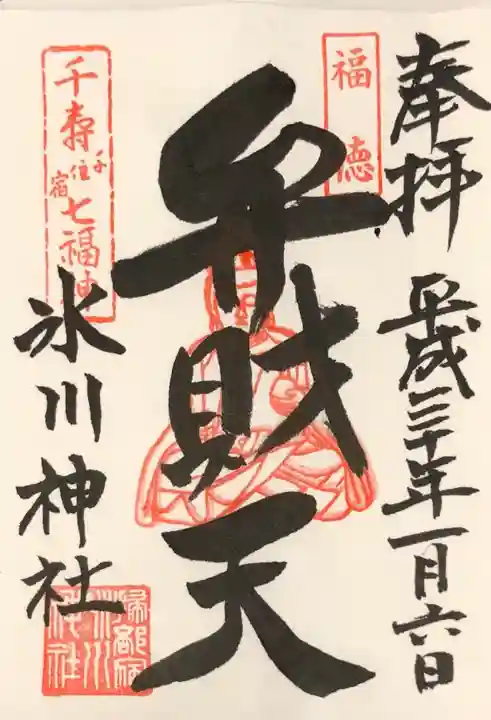 奉拝 平成三十年一月六日
福徳
弁財天
千寿七福神
千住宿
氷川神社